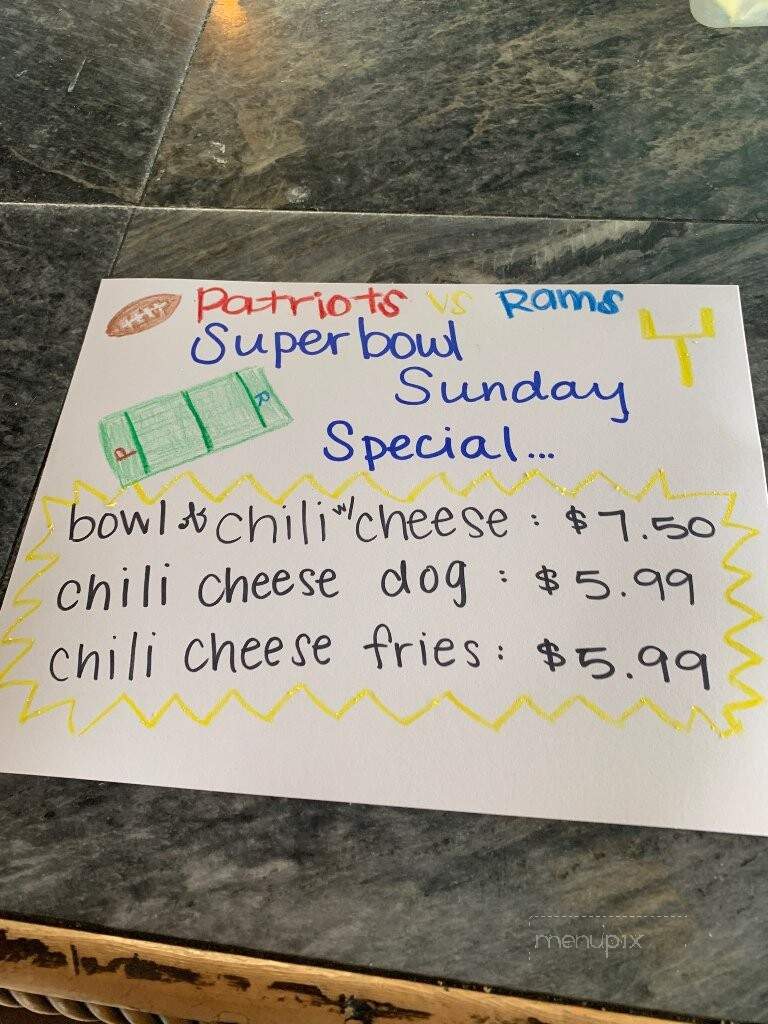 Patriots vs Rams
Superbowl
Sunday
Special...
P
R
bowl of chili w/ cheese : $7.50
chili cheese dog : $5.99
chili cheese fries : $5.99
menupix